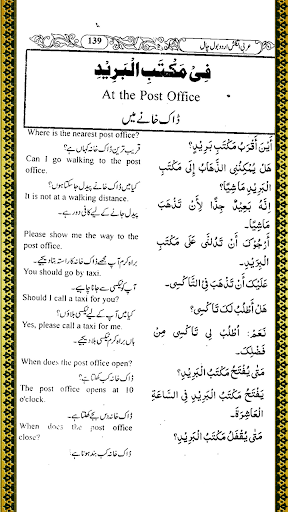 139
عربی انگلش اردو بول چال
فِىْ مَكْتَبِ الْبَرِيْدِ
At the Post Office
ڈاک خانے میں
Where is the nearest post office?
قریب ترین ڈاک خانہ کہاں ہے؟
أَيْنَ أَقْرَبُ مَكْتَبِ بَرِيْدٍ؟
Can I go walking to the post
office.
کیا میں ڈاک خانے پیدل جا سکتا ہوں؟
هَلْ يُمْكِنُنِى الذَّهَابُ إِلَى مَكْتَبِ
الْبَرِيْدِ مَاشِيًا؟
It is not at a walking distance.
پیدل جانے کے لیے کافی دور ہے۔
إِنَّهُ بَعِيْدٌ جِدًّا لِأَنْ تَذْهَبَ
مَاشِيًا۔
Please show me the way to the
post office.
براہ کرم آپ مجھے ڈاک خانہ کا راستہ بتا دیجیے۔
أَرْجُوْكَ أَنْ تَدُلَّنِى عَلَى مَكْتَبِ
الْبَرِيْدِ۔
You should go by taxi.
آپ کو ٹیکسی سے جانا چاہیے۔
عَلَيْكَ أَنْ تَذْهَبَ فِى التَّاكْسِى۔
Should I call a taxi for you?
کیا میں آپ کے لیے ٹیکسی بلاؤں؟
هَلْ أَطْلُبُ لَكَ تَاكْسِى؟
Yes, please call a taxi for me.
ہاں براہ کرم ٹیکسی بلا دیجیے۔
نَعَمْ: أُطْلُبْ لِى تَاكْسِى مِنْ
فَضْلِكَ۔
When does the post office open?
ڈاک خانہ کب کھلتا ہے؟
مَتٰى يُفْتَحُ مَكْتَبُ الْبَرِيْدِ؟
The post office opens at 10
o'clock.
ڈاک خانہ دس بجے کھلتا ہے۔
يَفْتَحُ مَكْتَبُ الْبَرِيْدِ فِى السَّاعَةِ
الْعَاشِرَةِ۔
When does the post office
close?
ڈاک خانہ کب بند ہوتا ہے؟
مَتٰى يُقْفَلُ مَكْتَبُ الْبَرِيْدِ؟